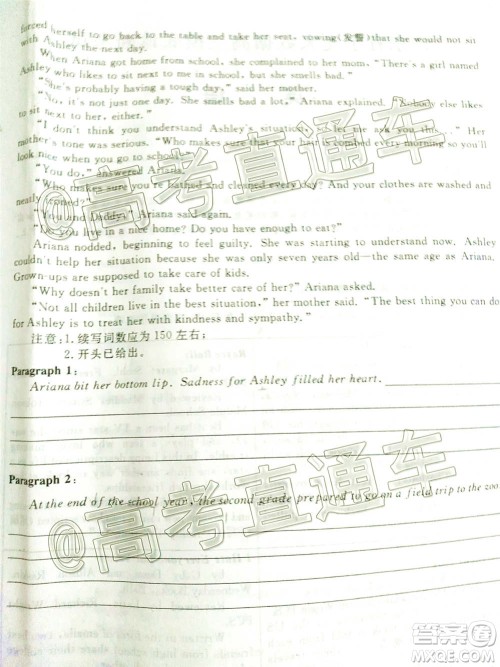 forced herself to go back to the table and take her seat, vowing(发誓) that she would not sit
with Ashley the next day.
When Ariana got home from school, she complained to her mom, "There's a girl named
Ashley who likes to sit next to me in school and she smells bad."
"She's probably having a tough day," said her mother.
"No, it's not just one day. She smells bad a lot," Ariana explained. "Nobody else likes
to sit next to her, either."
"I don't think you understand Ashley's situation. Let me ask you this..." Her
mother's tone was serious. "Who makes sure that your hair is combed every morning so you'll
look nice when you go to school?"
"You do," answered Ariana.
"Who makes sure you're bathed and cleaned every day? And your clothes are washed and
neatly ironed?"
"You and Daddy," Ariana said again.
"Do you live in a nice home? Do you have enough to eat?"
Ariana nodded, beginning to feel guilty. She was starting to understand now. Ashley
couldn't help her situation because she was only seven years old—the same age as Ariana.
Grown-ups are supposed to take care of kids.
"Why doesn't her family take better care of her?" Ariana asked.
"Not all children live in the best situation," her mother said. "The best thing you can do
for Ashley is to treat her with kindness and sympathy."
注意:1. 续写词数应为 150 左右;
2. 开头已给出。
Paragraph 1:
Ariana bit her bottom lip. Sadness for Ashley filled her heart.
Paragraph 2:
At the end of the school year, the second grade prepared to go on a field trip to the zoo.
@高考直通车
@高考直通车
答案圈
MXQE.COM